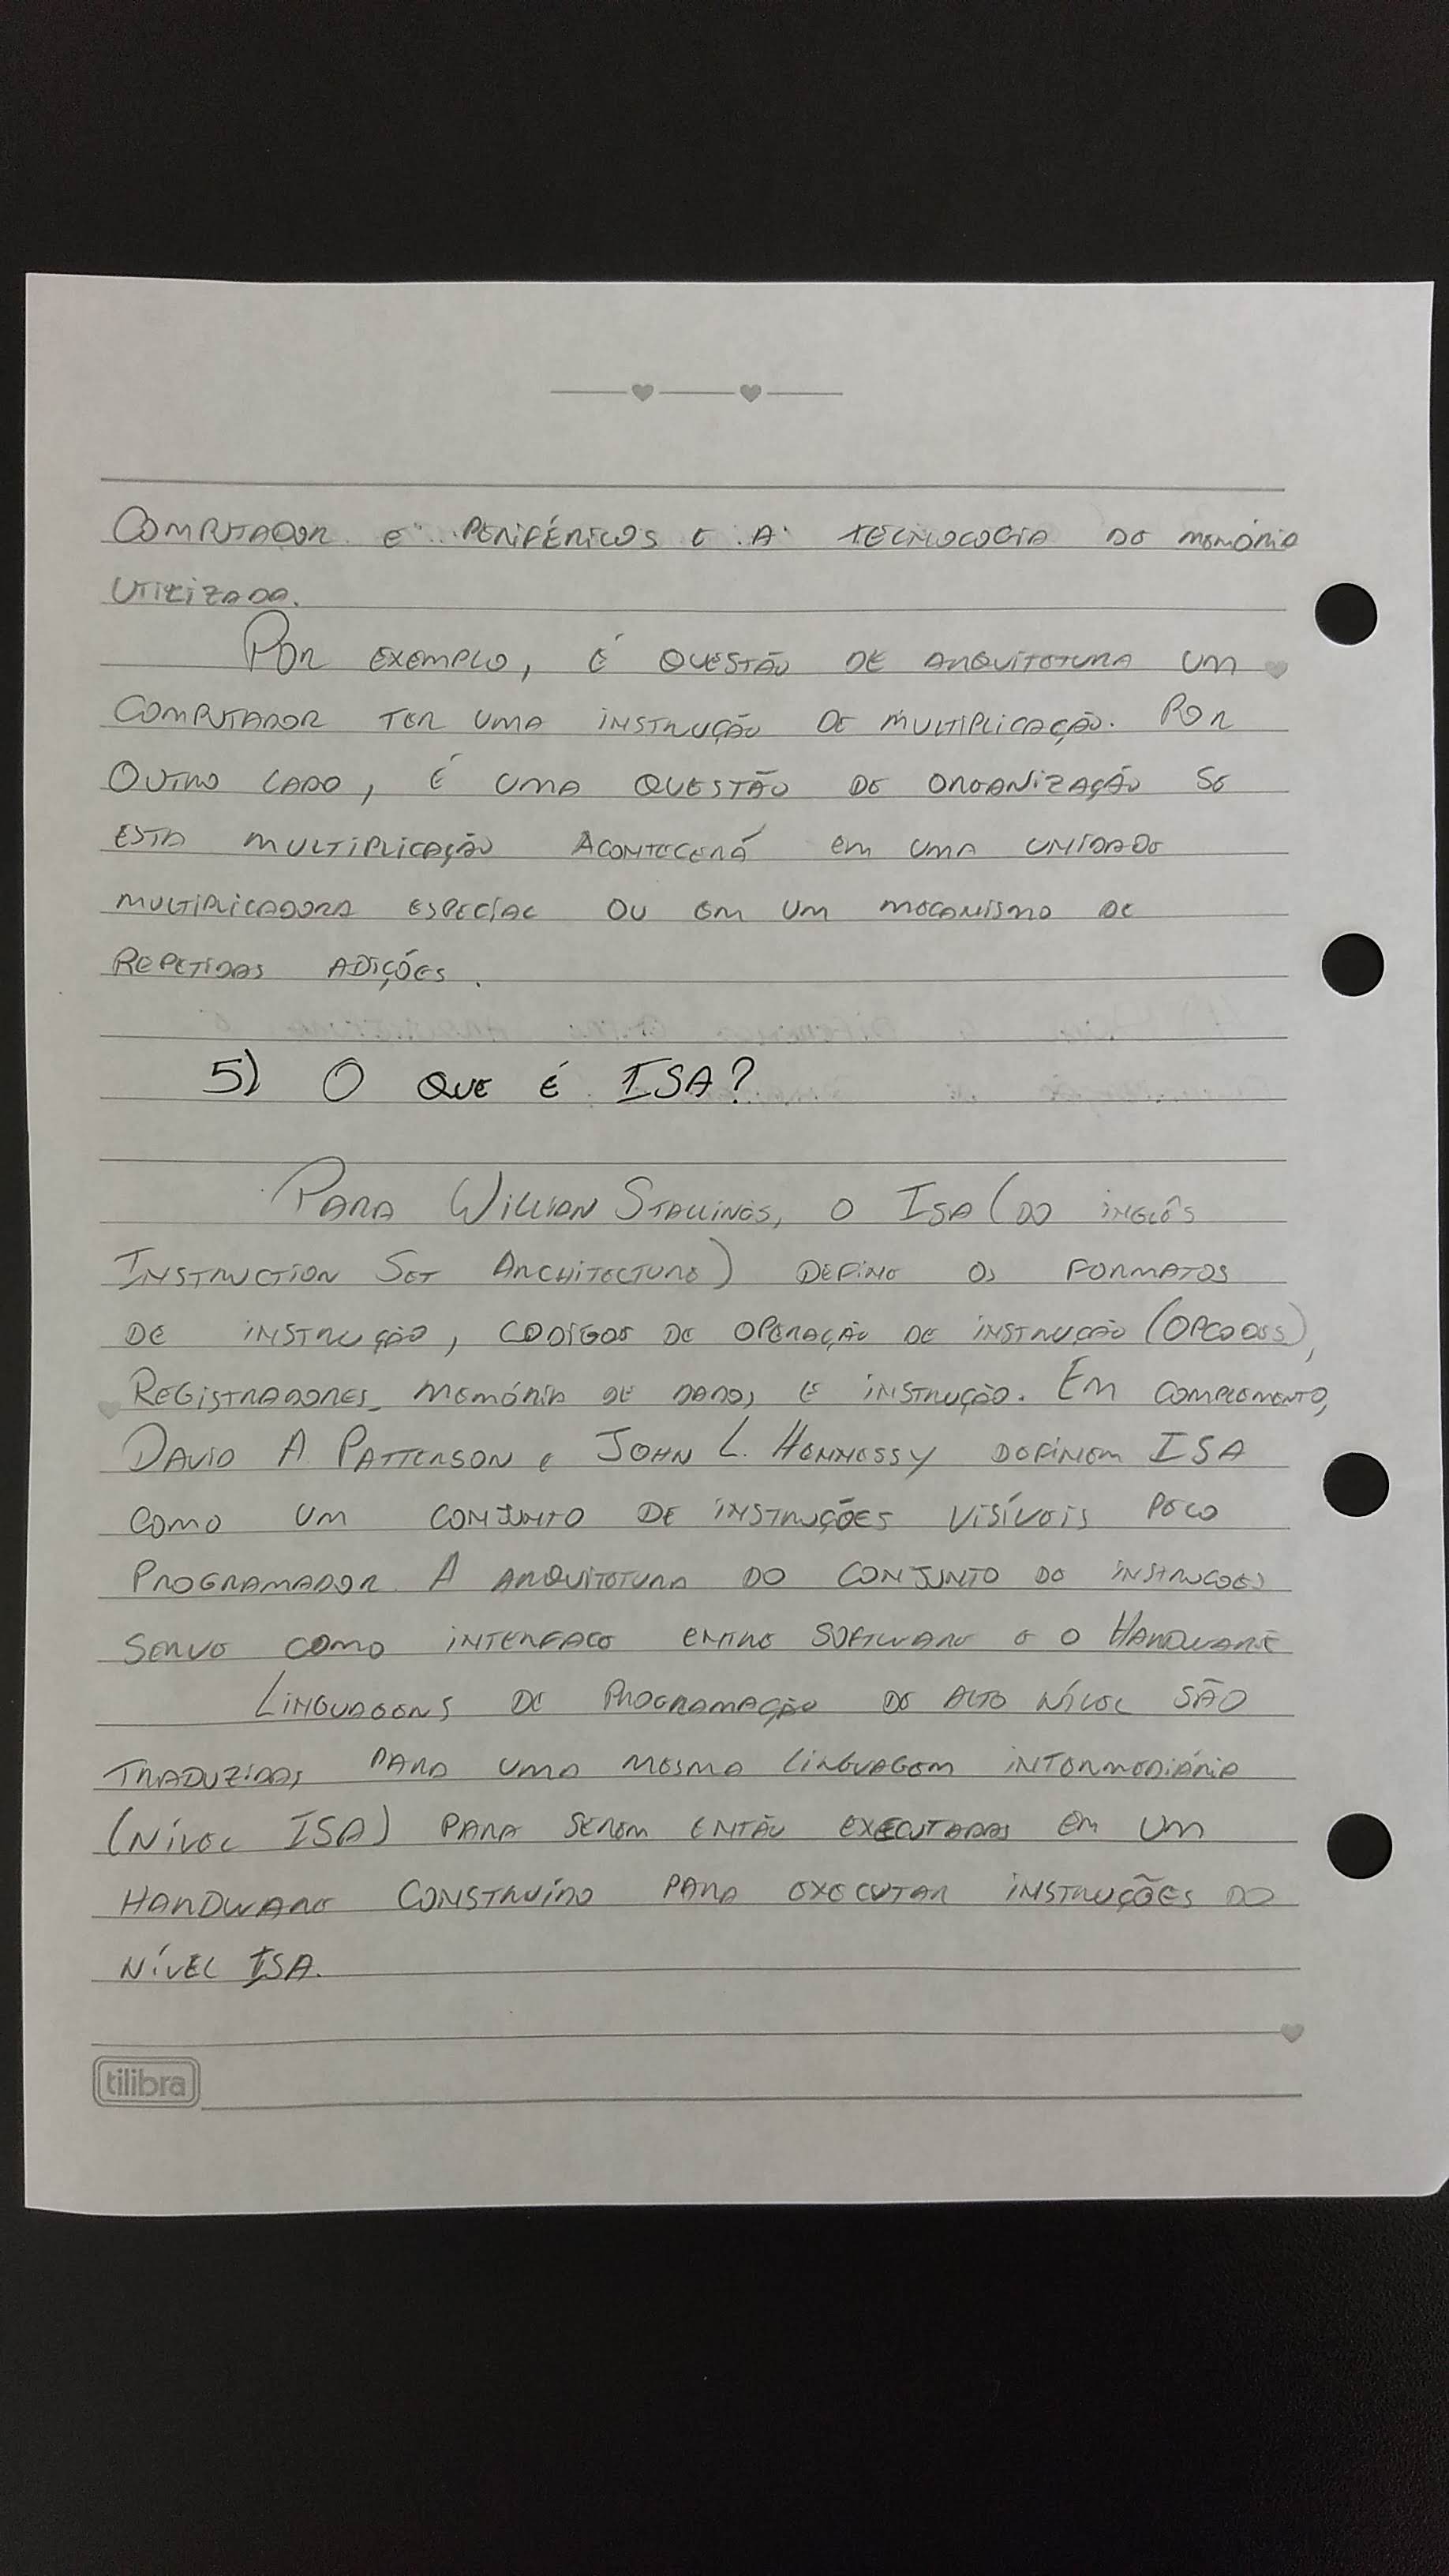 COMPUTADOR E PERIFÉRICOS E A TECNOLOGIA DE MEMÓRIA
UTILIZADA.
POR EXEMPLO, É QUESTÃO DE ARQUITETURA UM
COMPUTADOR TER UMA INSTRUÇÃO DE MULTIPLICAÇÃO. POR
OUTRO LADO, É UMA QUESTÃO DE ORGANIZAÇÃO SE
ESTA MULTIPLICAÇÃO ACONTECERÁ EM UMA UNIDADE
MULTIPLICADORA ESPECIAL OU EM UM MECANISMO DE
REPETIDAS ADIÇÕES.
5) O QUE É ISA?
PARA WILLIAN STALLINGS, O ISA (DO INGLÊS
INSTRUCTION SET ARCHITECTURE) DEFINE OS FORMATOS
DE INSTRUÇÃO, CODIGOS DE OPERAÇÃO DE INSTRUÇÃO (OPCODES),
REGISTRADORES, MEMÓRIA DE DADOS E INSTRUÇÃO. EM COMPLEMENTO,
DAVID A. PATTERSON E JOHN L. HENNESSY DEFINEM ISA
COMO UM CONJUNTO DE INSTRUÇÕES VISÍVEIS PELO
PROGRAMADOR. A ARQUITETURA DO CONJUNTO DE INSTRUCOES
SERVE COMO INTERFACE ENTRE SOFTWARE E O HARDWARE
LINGUAGENS DE PROGRAMAÇÃO DE ALTO NÍVEL SÃO
TRADUZIDAS PARA UMA MESMA LINGUAGEM INTERMEDIÁRIA
(NÍVEL ISA) PARA SEREM ENTÃO EXECUTADAS EM UM
HARDWARE CONSTRUÍDO PARA EXECUTAR INSTRUÇÕES DO
NÍVEL ISA.
tilibra